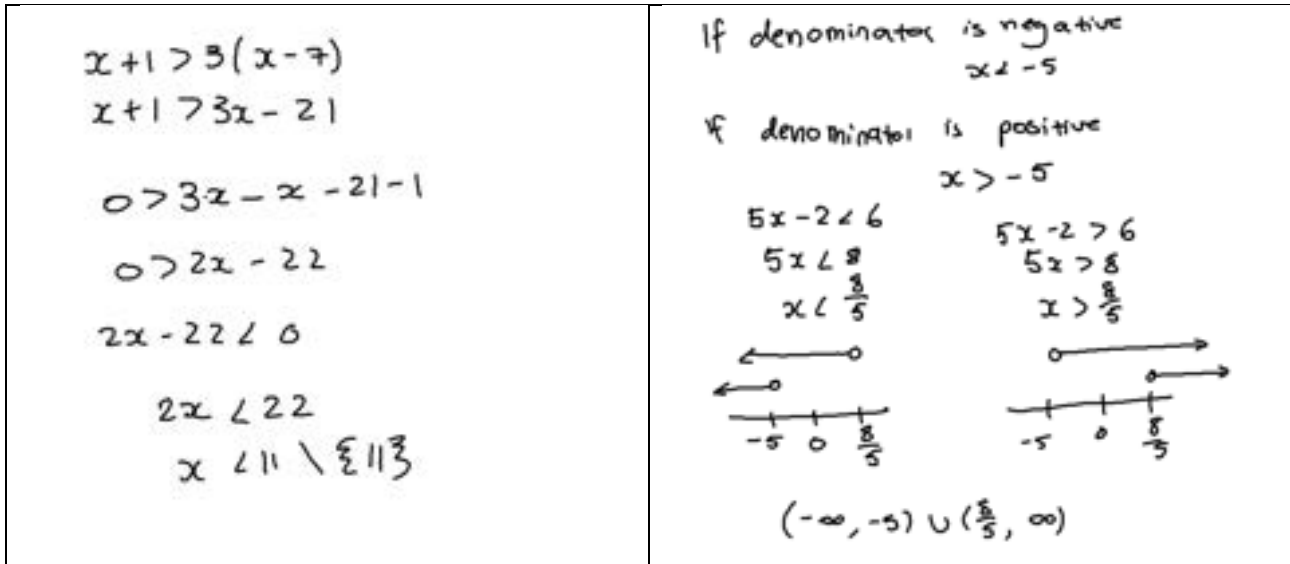 x+1 > 3(x-7)
x+1 > 3x - 21
0 > 3x - x - 21 - 1
0 > 2x - 22
2x - 22 < 0
2x < 22
x < 11 \ {11}
If denominator is negative
x < -5
if denominator is positive
x > -5
5x - 2 < 6
5x < 8
x < 8/5
-5 0 8/5
5x - 2 > 6
5x > 8
x > 8/5
-5 0 8/5
(-∞, -5) ∪ (8/5, ∞)